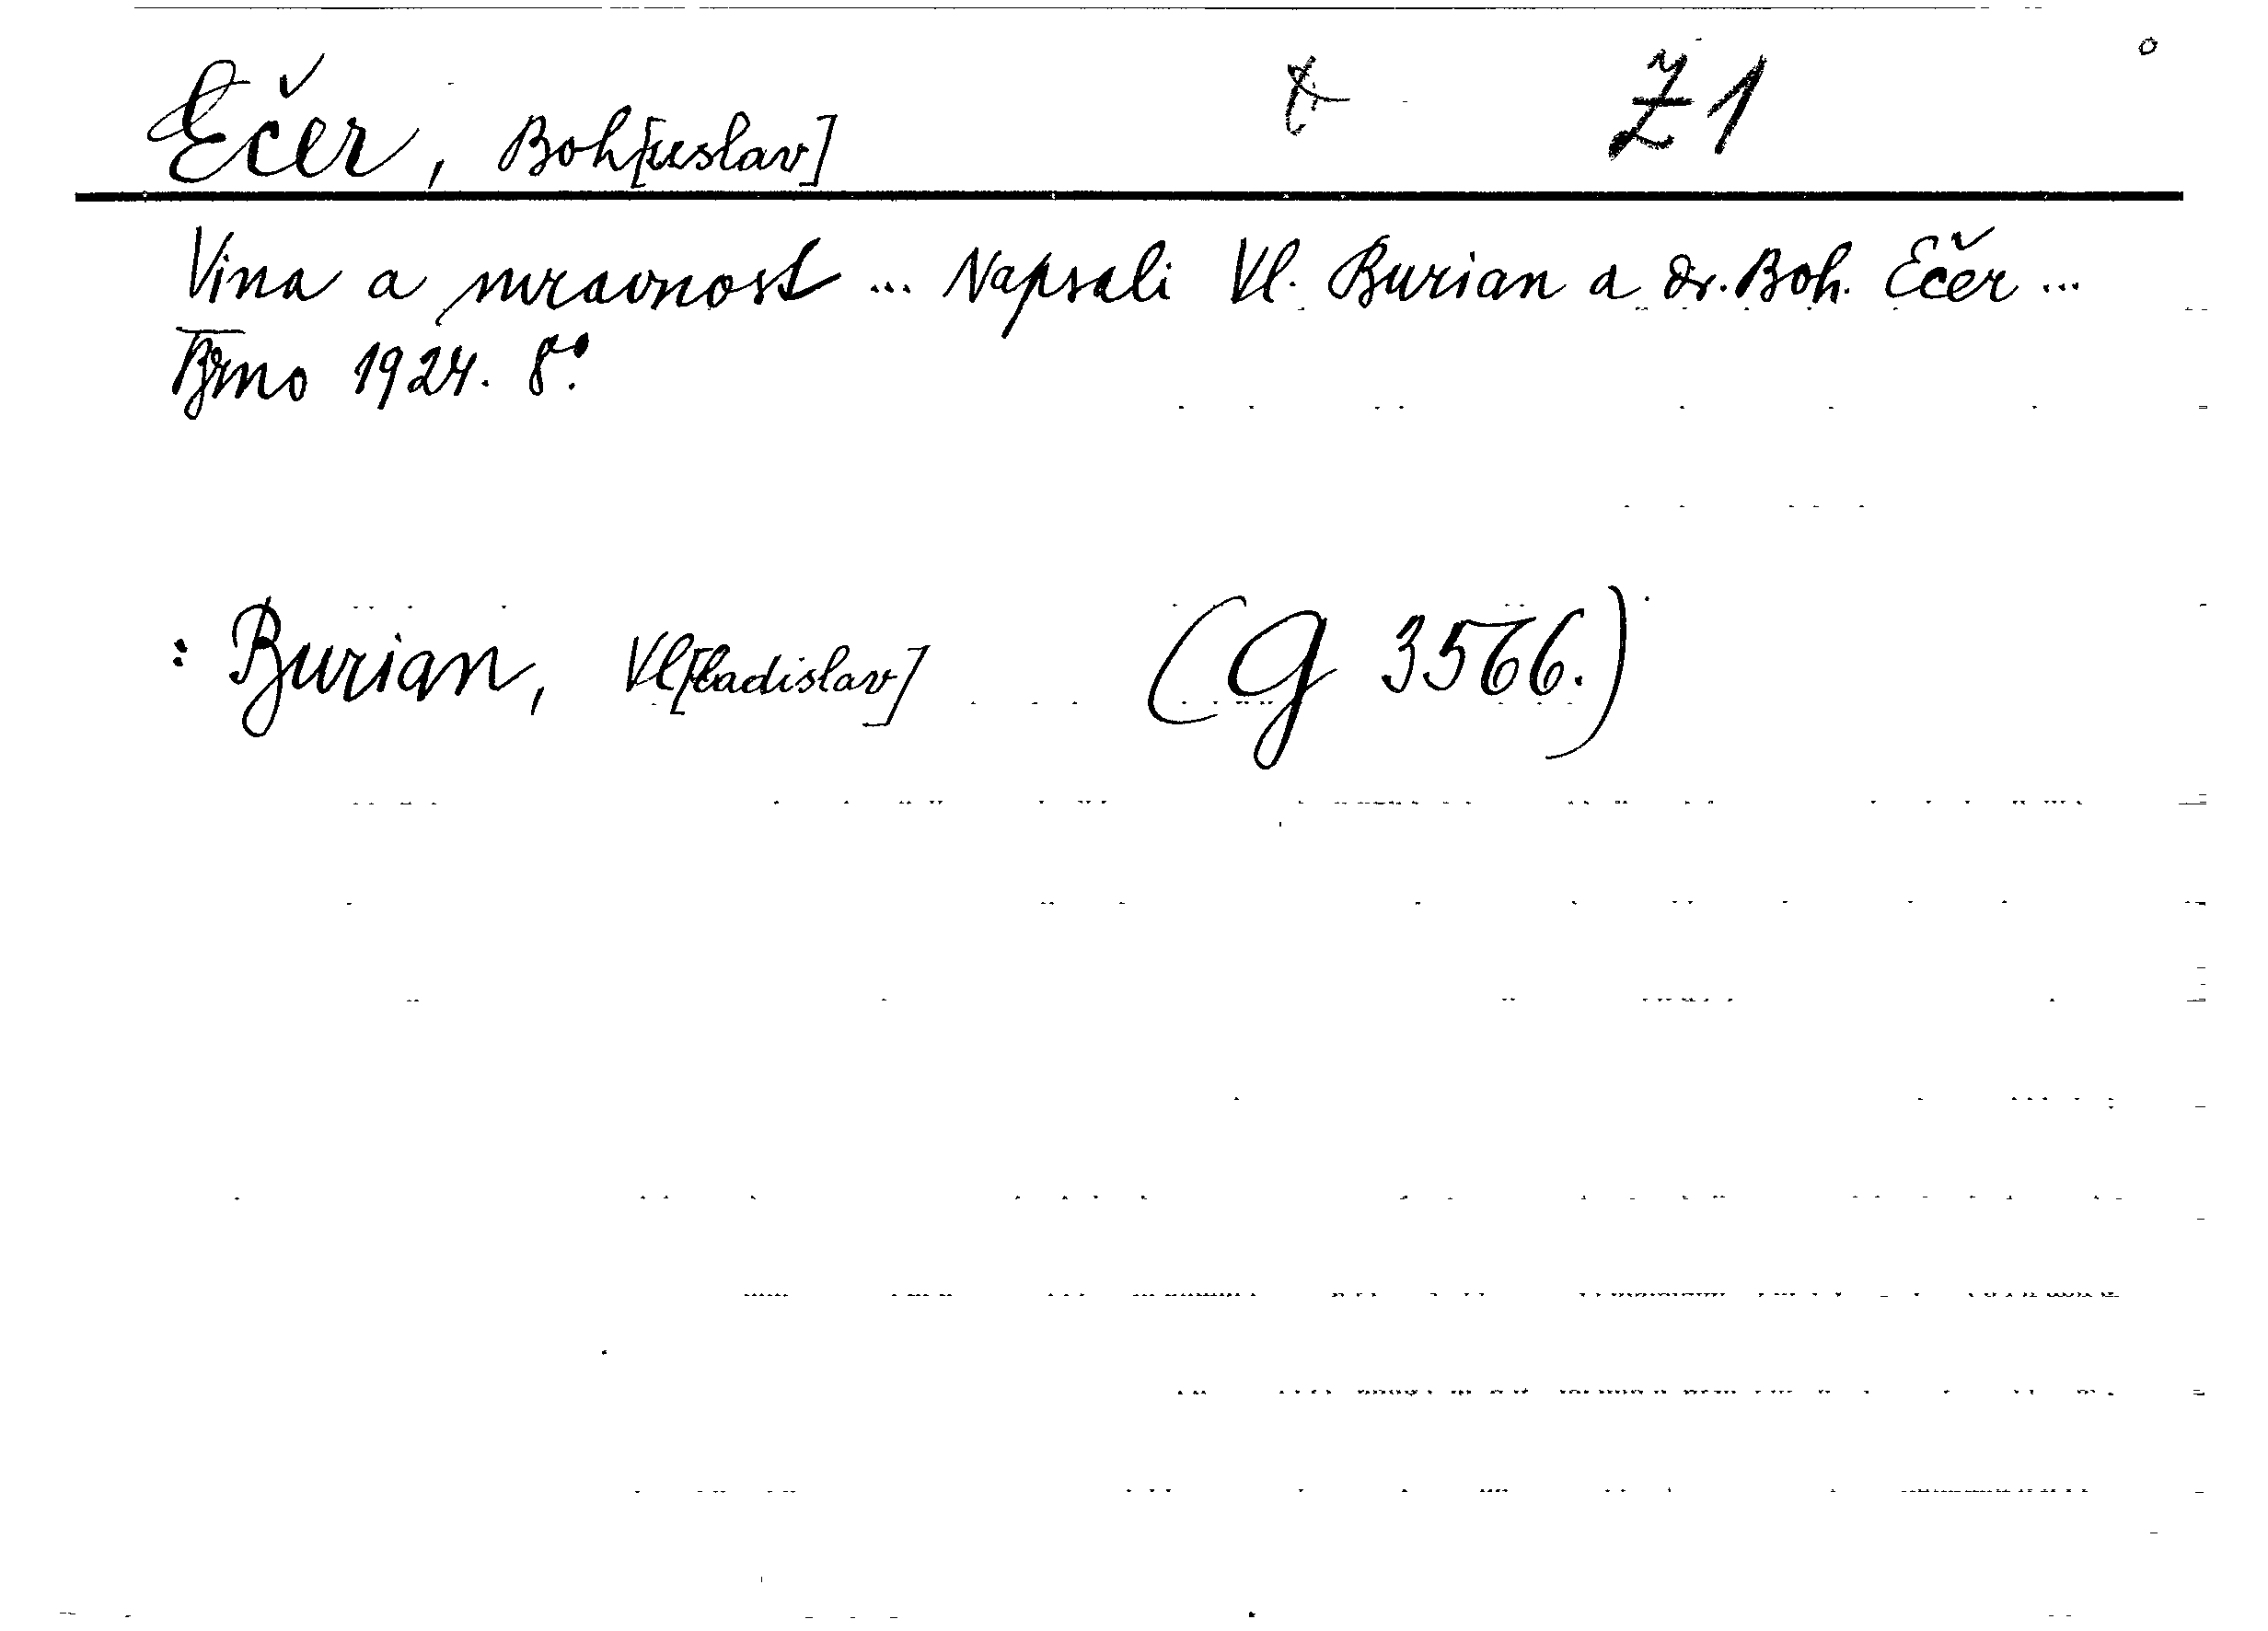 Ečer, Boh[uslav] Z1
Vina a mravnost ... Napsali Vl. Burian a Dr. Boh. Ečer ...
Brno 1924. 8°.
: Burian, Vl[adislav] (G 3566.)